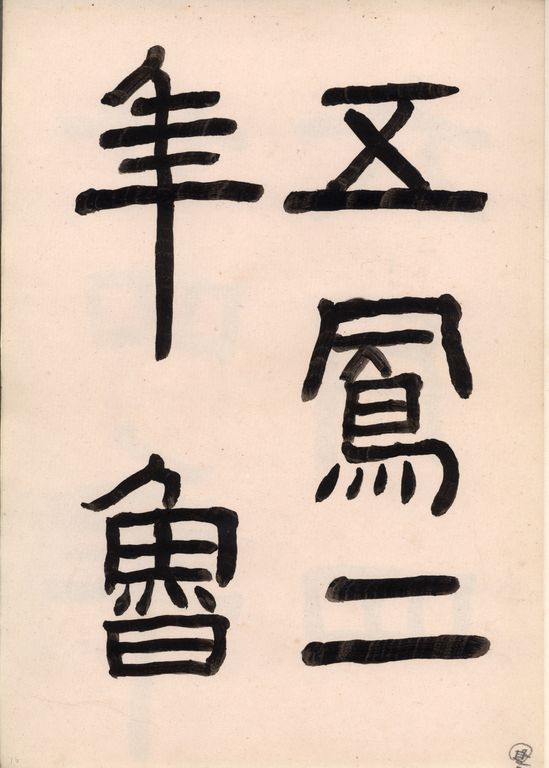 五鳳二
年魯